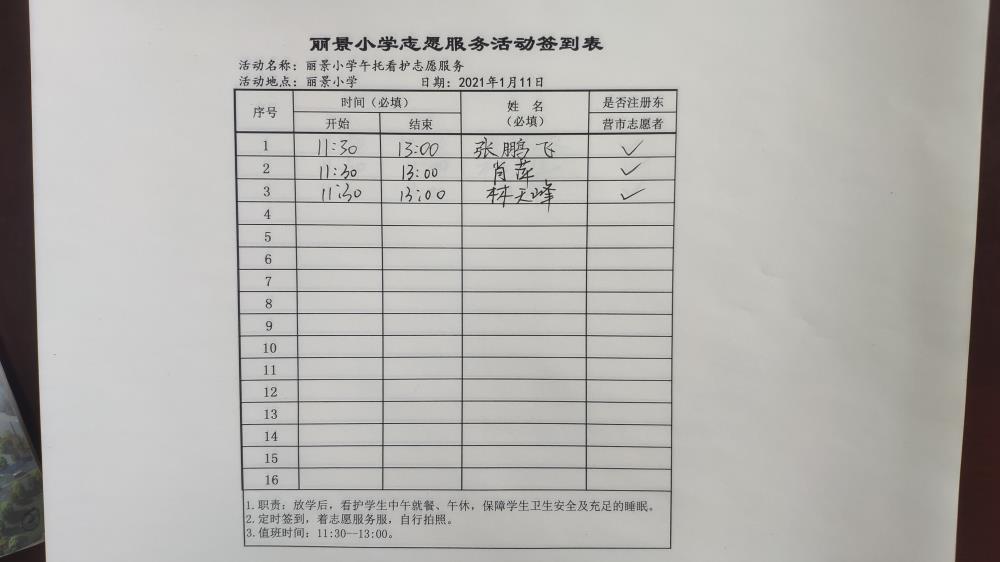 丽景小学志愿服务活动签到表
活动名称：丽景小学午托看护志愿服务
活动地点：丽景小学 日期：2021年1月11日
序号 时间（必填） 姓 名（必填） 是否注册东营市志愿者
开始 结束
1 11:30 13:00 张鹏飞 ✓
2 11:30 13:00 肖萍 ✓
3 11:30 13:00 林天峰 ✓
4
5
6
7
8
9
10
11
12
13
14
15
16
1.职责：放学后，看护学生中午就餐、午休，保障学生卫生安全及充足的睡眠。
2.定时签到，着志愿服务服，自行拍照。
3.值班时间：11:30--13:00。